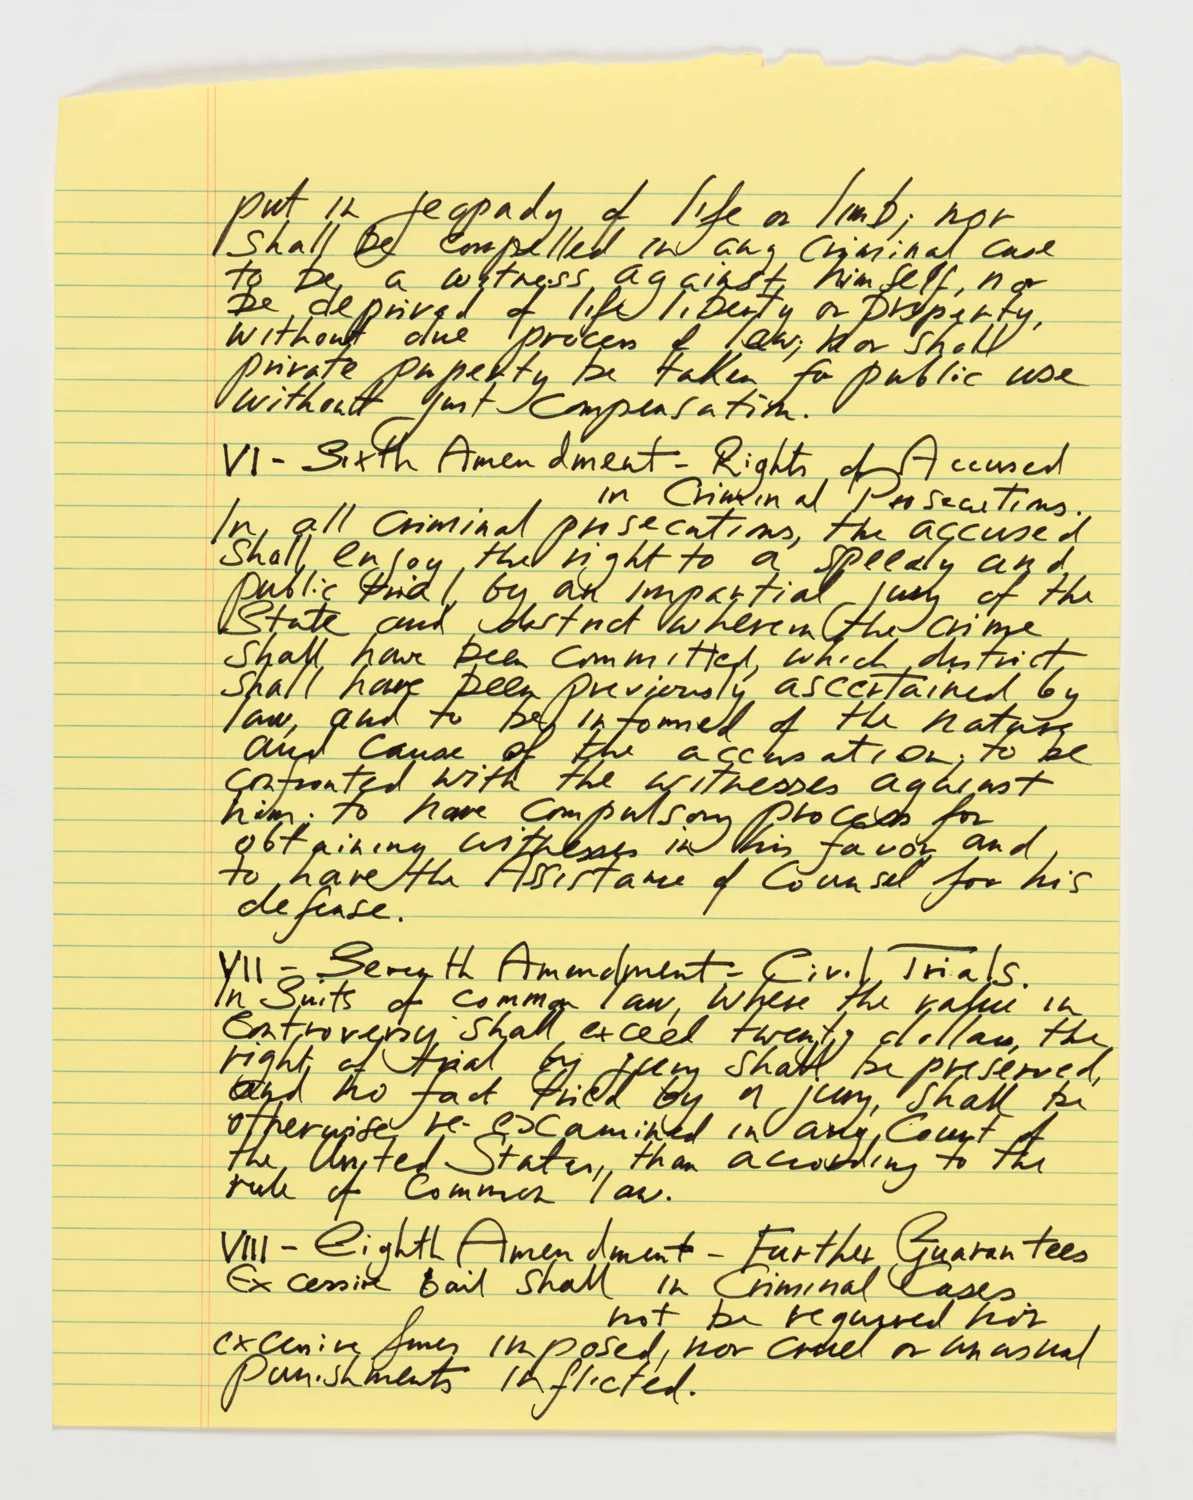 put in jeopady of life or limb; nor
shall be compelled in any criminal case
to be a witness against himself, nor
be deprived of life liberty or property,
without due process of law; Nor shall
private property be taken for public use
without just compensation.
VI - Sixth Amendment - Rights of Accused
in Criminal Prosecutions.
In all criminal prosecutions, the accused
shall enjoy the right to a speedy and
public trial, by an impartial jury of the
State and district wherein the crime
shall have been committed, which district
shall have been previously ascertained by
law, and to be informed of the nature
and cause of the accusation; to be
confronted with the witnesses against
him: to have compulsory process for
obtaining witnesses in his favor and
to have the Assistance of Counsel for his
defense.
VII - Seventh Amendment - Civil Trials.
In Suits of common law, where the value in
controversy shall exceed twenty dollars, the
right of trial by jury shall be preserved,
and no fact tried by a jury, shall be
otherwise re-examined in any Court of
the United States, than according to the
rule of Common law.
VIII - Eighth Amendment - Further Guarantees
Excessive bail shall in Criminal Cases
not be required nor
excessive fines imposed, nor cruel or unusual
punishments inflicted.